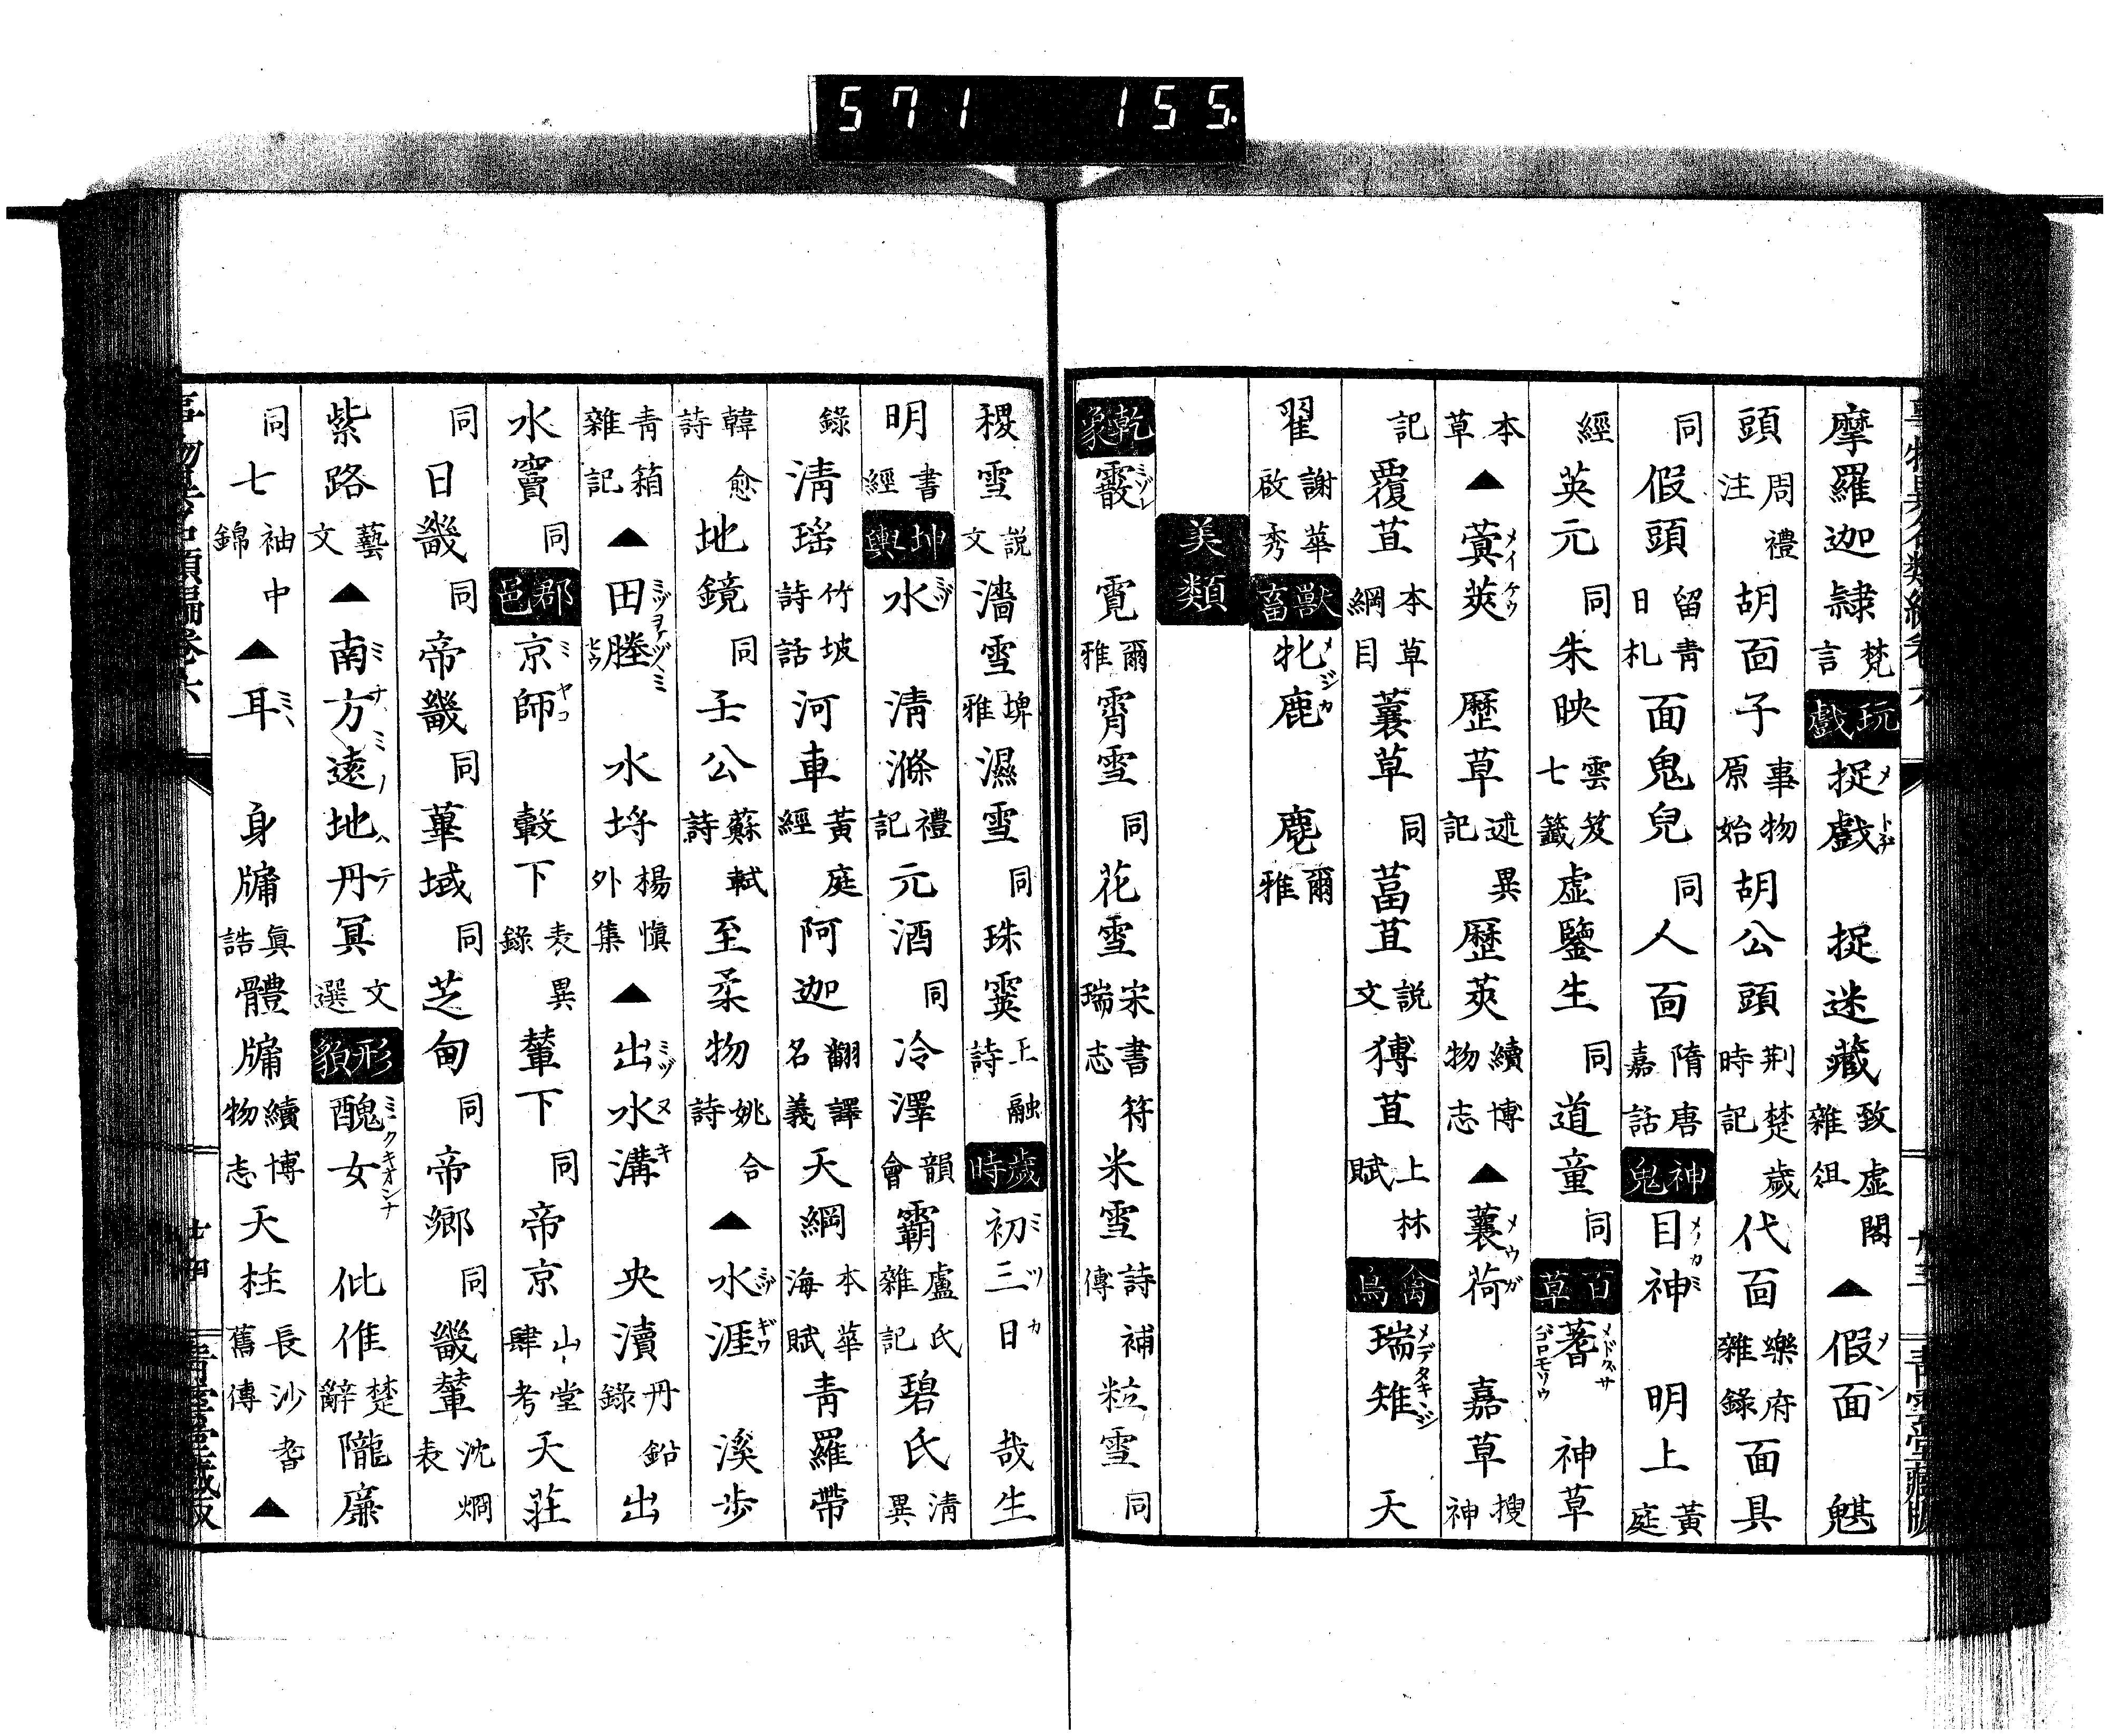 571 155.
摩羅迦隷梵言 玩戲 捉戲メトチ 捉迷藏致虚雜俎閣▲假面メン 魌
頭周禮注胡面子事物原始胡公頭荆楚歲時記代面樂府雜錄面具
同假頭留青日札面鬼兒同人面隋唐嘉話 神鬼 目神メノカミ 明上黃庭
經英元同朱映雲笈七籤虚鑒生同道童同 百草 蓍メドグサ 神草
本草▲蓂莢メイケウ 歷草述異記歷莢續博物志▲蘘荷メウガ 嘉草搜神
記覆苴本草綱目蘘草同葍苴説文猼苴上林賦 禽鳥 瑞雉メデタキヾジ 天
翟謝華啟秀 獸畜 牝鹿メジカ 麀爾雅
美類
乾象 霰ミゾレ 霓爾雅霄雪同花雪宋書符瑞志米雪詩補傳粒雪同
稷雪説文濇雪埤雅濕雪同珠霙王融詩 歲時 初三日ミツカ 哉生
明書經 坤輿 水ミヅ 淸滌禮記元酒同冷澤韻會霸盧氏雜記碧氏淸異
錄淸瑤竹坡詩話河車黃庭經阿迦翻譯名義天綱本草海賦靑羅帶
韓愈詩地鏡同壬公蘇軾詩至柔物姚合詩▲水涯ミヅギワ 溪步
靑箱雜記▲田塍 水埒楊愼外集▲出水溝ミヅヌキ 央瀆丹鉛錄出
水竇同 郡邑 京師ミヤコ 轂下表異錄輦下同帝京山堂肆考天莊
同日畿同帝畿同蕈域同芝甸同帝鄉同畿輦沈烱表
紫路藝文▲南方遠地ミナミノハテ 丹冥文選 形貌 醜女ミニクキオンナ 仳倠楚辭隴廉
同七袖中錦▲耳ミヽ 身牖眞誥體牖續博物志天柱長沙耆舊傳▲